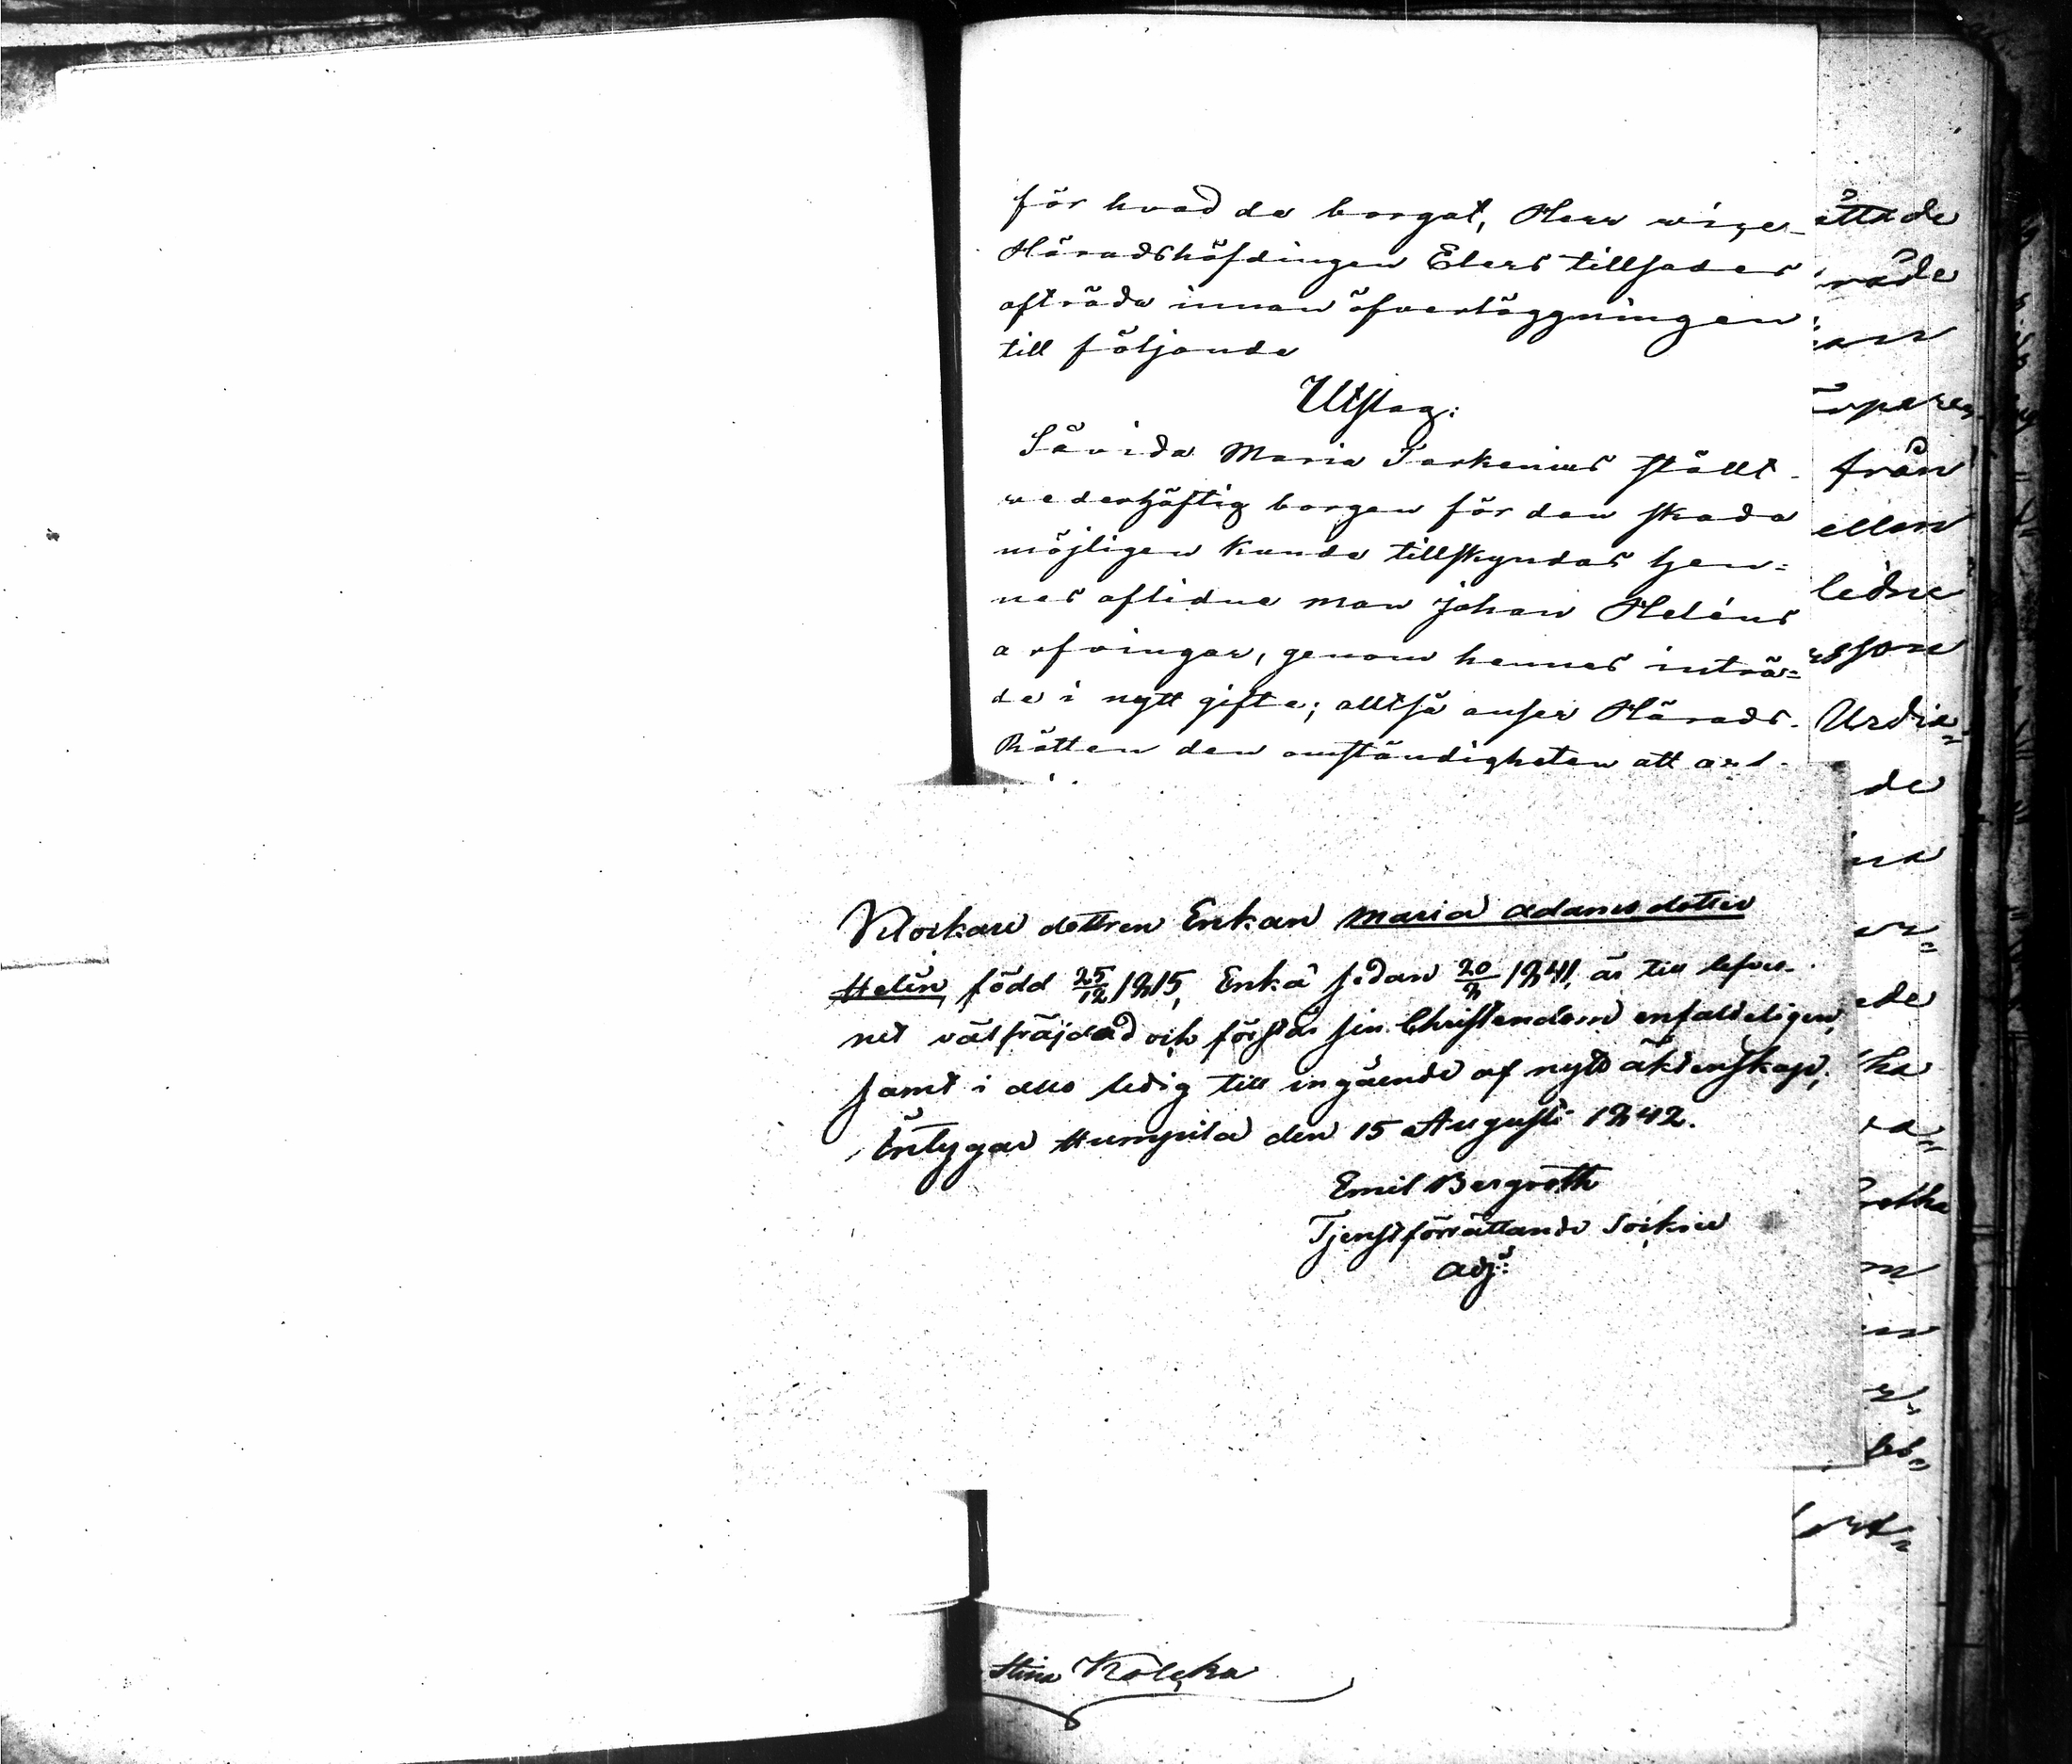 för hvad de borgat, Herr vize-
Häradshöfdingen Elers tillsades
afträda innan öfverläggningen
till följande
Utslag:
Såvida Maria Tarkenius ställt
vederhäftig borgen för den skada
möjligen kunde tillskyndas hen=
nes aflidne man Johan Heléns
arfvingar, genom hennes inträ=
de i nytt gifte; alltså anser Härads-
Rätten den omständigheten att
Klockare dottren Enkan Maria Adamsdotter
Helén, född 25/12 1815, Enka sedan 20/8 1841, är till lefver-
net välfräjdad och förstår sin Christendom enfaldeligen,
samt i allo ledig till ingående af nytt äktenskap,
Intygar Humppila den 15 Augusti 1842.
Emil Bergroth
Tjenstförrättande Sockne
Adj:
ättade
råde
från
ellen
ledne
sson
Urdia=
de
ede
tha
retha
Stina Kölcka